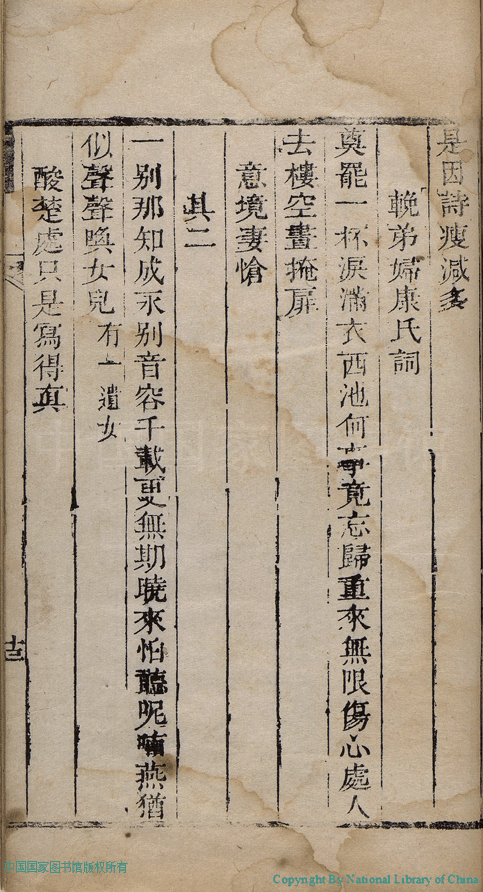 是因詩瘦減多
輓弟婦康氏詞
奠罷一杯淚滿衣西池何事竟忘歸重來無限傷心處人
去樓空晝掩扉
意境悽愴
其二
一別那知成永別音容千載更無期曉來怕聽呢喃燕猶
似聲聲喚女兒有一遺女
酸楚處只是寫得真
十三
中国国家图书馆
中国国家图书馆版权所有
Copyright By National Library of China